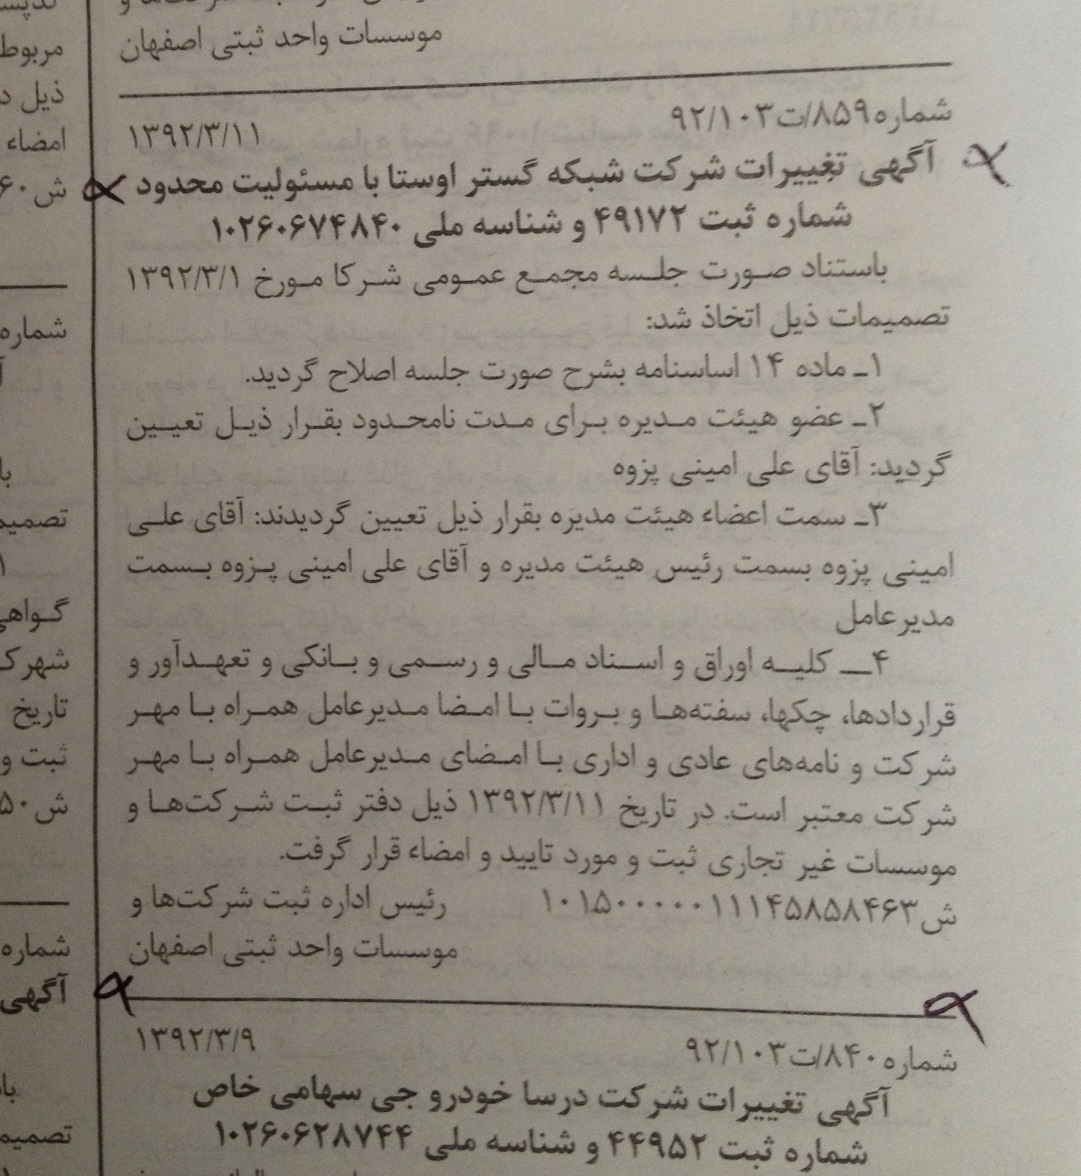 موسسات واحد ثبتی اصفهان
شماره۸۵۹/ت۹۲/۱۰۳ ۱۳۹۲/۳/۱۱
آگهی تغییرات شرکت شبکه گستر اوستا با مسئولیت محدود
شماره ثبت ۴۹۱۷۲ و شناسه ملی ۱۰۲۶۰۶۷۴۸۴۰
باستناد صورت جلسه مجمع عمومی شرکا مورخ ۱۳۹۲/۳/۱
تصمیمات ذیل اتخاذ شد:
۱ـ ماده ۱۴ اساسنامه بشرح صورت جلسه اصلاح گردید.
۲ـ عضو هیئت مدیره برای مدت نامحدود بقرار ذیل تعیین
گردید: آقای علی امینی پزوه
۳ـ سمت اعضاء هیئت مدیره بقرار ذیل تعیین گردیدند: آقای علی
امینی پزوه بسمت رئیس هیئت مدیره و آقای علی امینی پزوه بسمت
مدیرعامل
۴ـ کلیه اوراق و اسناد مالی و رسمی و بانکی و تعهدآور و
قراردادها، چکها، سفته‌ها و بروات با امضا مدیرعامل همراه با مهر
شرکت و نامه‌های عادی و اداری با امضای مدیرعامل همراه با مهر
شرکت معتبر است. در تاریخ ۱۳۹۲/۳/۱۱ ذیل دفتر ثبت شرکت‌ها و
موسسات غیر تجاری ثبت و مورد تایید و امضاء قرار گرفت.
ش۱۰۱۵۰۰۰۰۰۱۱۱۴۵۸۵۸۴۶۳ رئیس اداره ثبت شرکت‌ها و
موسسات واحد ثبتی اصفهان
شماره۸۴۰/ت۹۲/۱۰۳ ۱۳۹۲/۳/۹
آگهی تغییرات شرکت درسا خودرو جی سهامی خاص
شماره ثبت ۴۴۹۵۲ و شناسه ملی ۱۰۲۶۰۶۲۸۷۴۴
مربوط
ذیل د
امضاء
ش۶۰
شماره
با
تصمیم
گواهی
شهرک
تاریخ
ثبت و
ش۵۰
شماره
آگهی
با
تصمیم